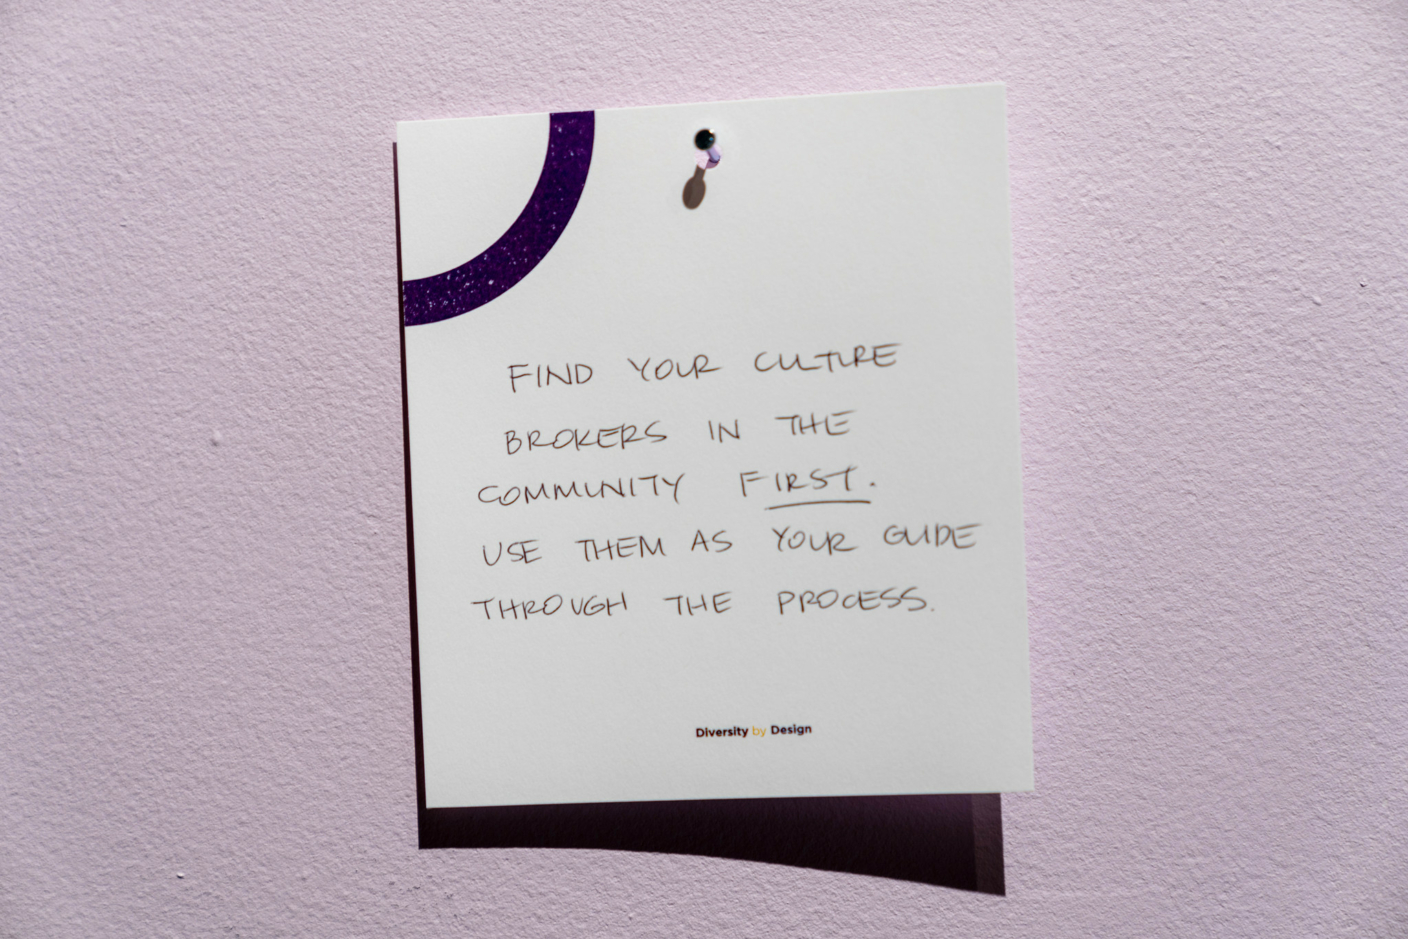 FIND YOUR CULTURE
BROKERS IN THE
COMMUNITY FIRST.
USE THEM AS YOUR GUIDE
THROUGH THE PROCESS.
Diversity by Design